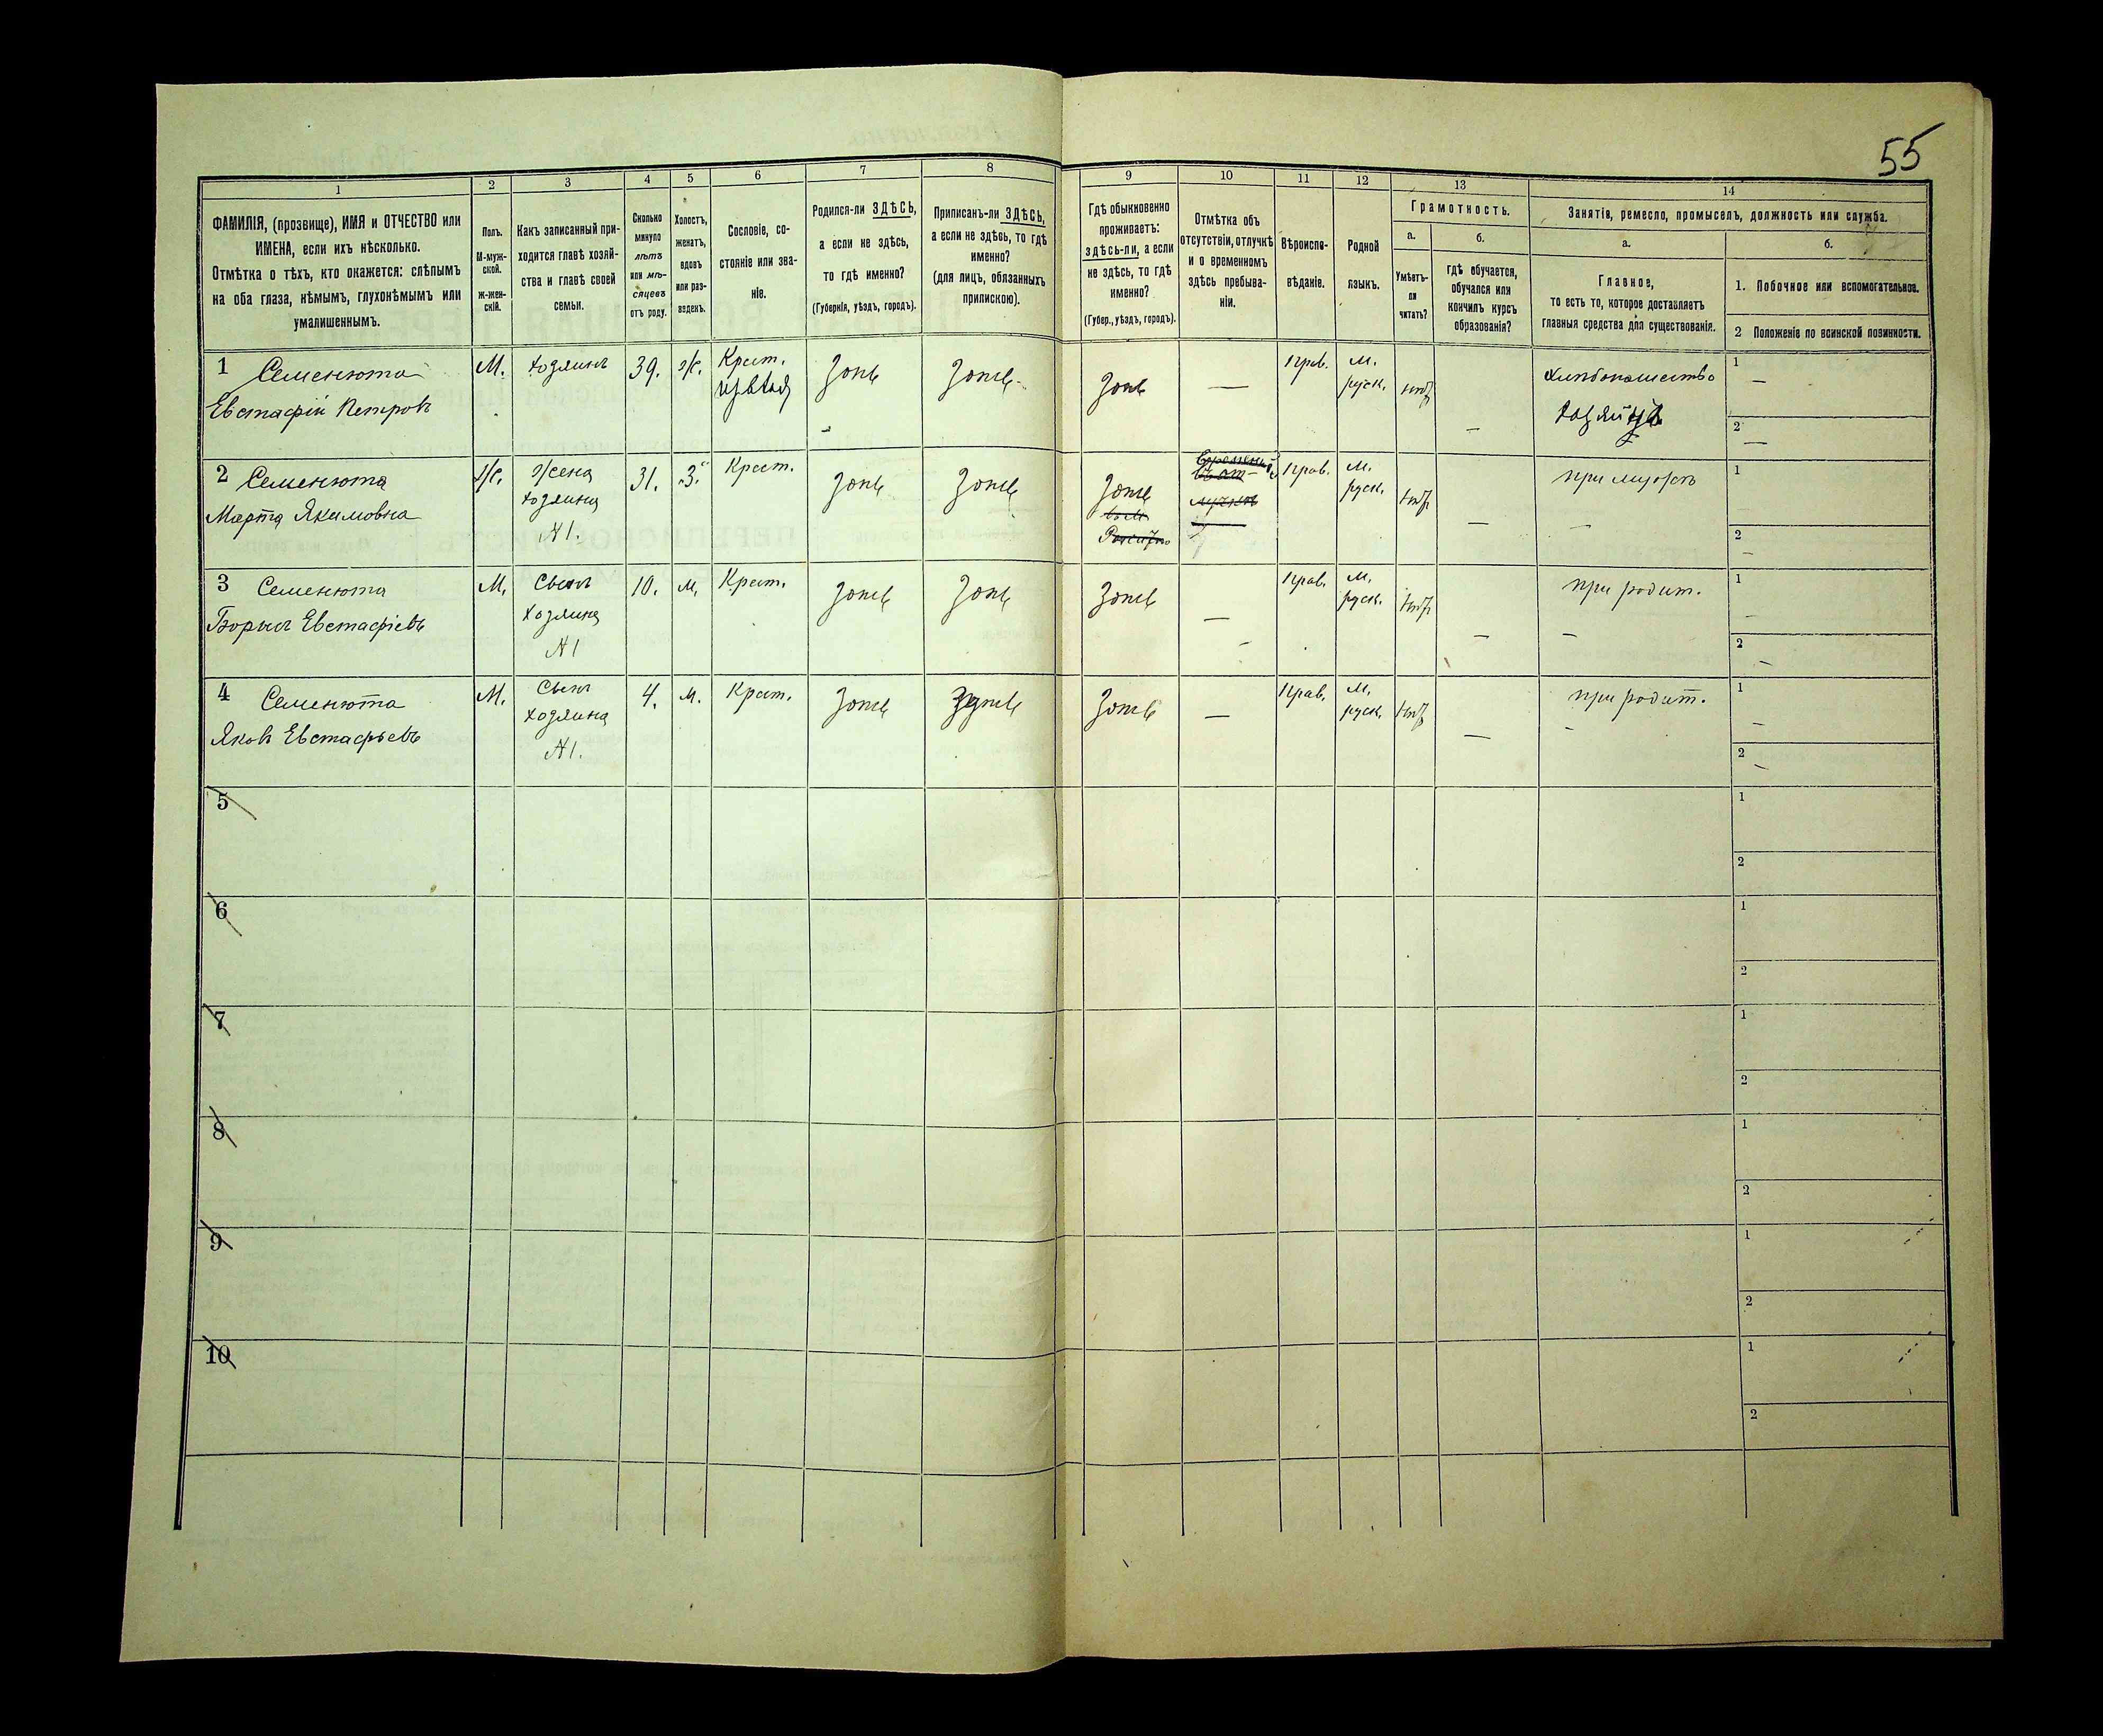 55
1
2
3
4
5
6
7
8
9
10
11
12
13
14
ФАМИЛІЯ, (прозвище), ИМЯ и ОТЧЕСТВО или
ИМЕНА, если ихъ нѣсколько.
Отмѣтка о тѣхъ, кто окажется: слѣпымъ
на оба глаза, нѣмымъ, глухонѣмымъ или
умалишеннымъ.
Полъ.
М-муж-
ской.
ж-жен-
скій.
Какъ записанный при-
ходится главѣ хозяй-
ства и главѣ своей
семьи.
Сколько
минуло
лѣтъ
или мѣ-
сяцевъ
отъ роду.
Холостъ,
женатъ,
вдовъ
или раз-
веденъ.
Сословіе, со-
стояніе или зва-
ніе.
Родился-ли ЗДѢСЬ,
а если не здѣсь,
то гдѣ именно?
(Губернія, уѣздъ, городъ).
Приписанъ-ли ЗДѢСЬ,
а если не здѣсь, то гдѣ
именно?
(для лицъ, обязанныхъ
припискою).
Гдѣ обыкновенно
проживаетъ:
здѣсь-ли, а если
не здѣсь, то гдѣ
именно?
(Губер., уѣздъ, городъ).
Отмѣтка объ
отсутствіи, отлучкѣ
и о временномъ
здѣсь пребыва-
ніи.
Вѣроиспо-
вѣданіе.
Родной
языкъ.
Грамотность.
а.
Умѣетъ-
ли
читать?
б.
гдѣ обучается,
обучался или
кончилъ курсъ
образованія?
Занятія, ремесло, промыселъ, должность или служба.
а.
Главное,
то есть то, которое доставляетъ
главныя средства для существованія.
б.
1. Побочное или вспомогательное.
2 Положеніе по воинской повинности.
1 Семенюта
Евстафій Петровъ
М.
хозяинъ
39.
ж.
Крест.
Прав.
М.
руск.
нѣтъ
хлѣбопашество
1
—
2
—
2 Семенюта
Марта Якимовна
Ж.
жена
хозяина
№1.
31.
З.
Крест.
Прав.
М.
руск.
нѣтъ
при мужѣ
1
2
—
3 Семенюта
Борисъ Евстафіевъ
М.
Сынъ
хозяина
№1
10.
М.
Крест.
—
Прав.
М.
руск.
нѣтъ
—
при родит.
1
—
2
—
4 Семенюта
Яковъ Евстафьевъ
М.
Сынъ
хозяина
№1.
4.
М.
Крест.
—
Прав.
М.
руск.
нѣтъ
—
при родит.
1
—
2
—
5
1
2
6
1
2
7
1
2
8
1
2
9
1
2
10
1
2